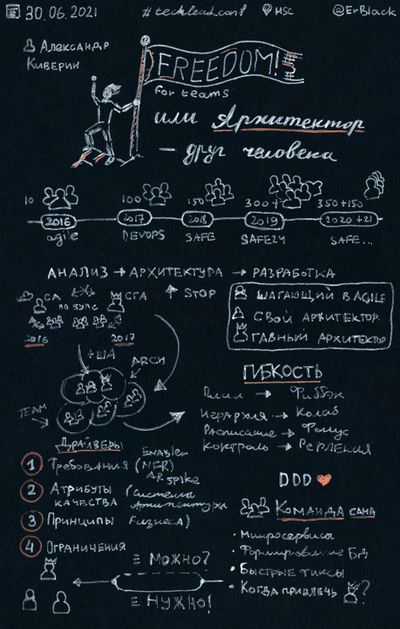 30.06.2021 #techleadconf МSC @ErBlack
Александр
Киверин
FREEDOM!
for teams
или Архитектор
— друг человека
10 100 150 300+ 350+150
2016 2017 2018 2019 2020+21
agile DEVOPS SAFE SAFE24 SAFE...
АНАЛИЗ → АРХИТЕКТУРА → РАЗРАБОТКА
СА СГА ↑ STOP
2016 2017
+ША
ARCH
TEAM
ШАГАЮЩИЙ В AGILE
СВОЙ АРХИТЕКТОР
ГЛАВНЫЙ АРХИТЕКТОР
ГИБКОСТЬ
План → Фидбэк
Иерархия → Колаб
Расписание → Фокус
Контроль →
DDD
Драйверы
1 Требования (NFR)
Enabler
spike
2 Атрибуты
качества (Системы
Архитектура
3 Принципы
4 Ограничения
Команда сама
• Микросервисы
• Формирование БД
• Быстрые
• Когда привлечь ?
Можно?
Нужно!